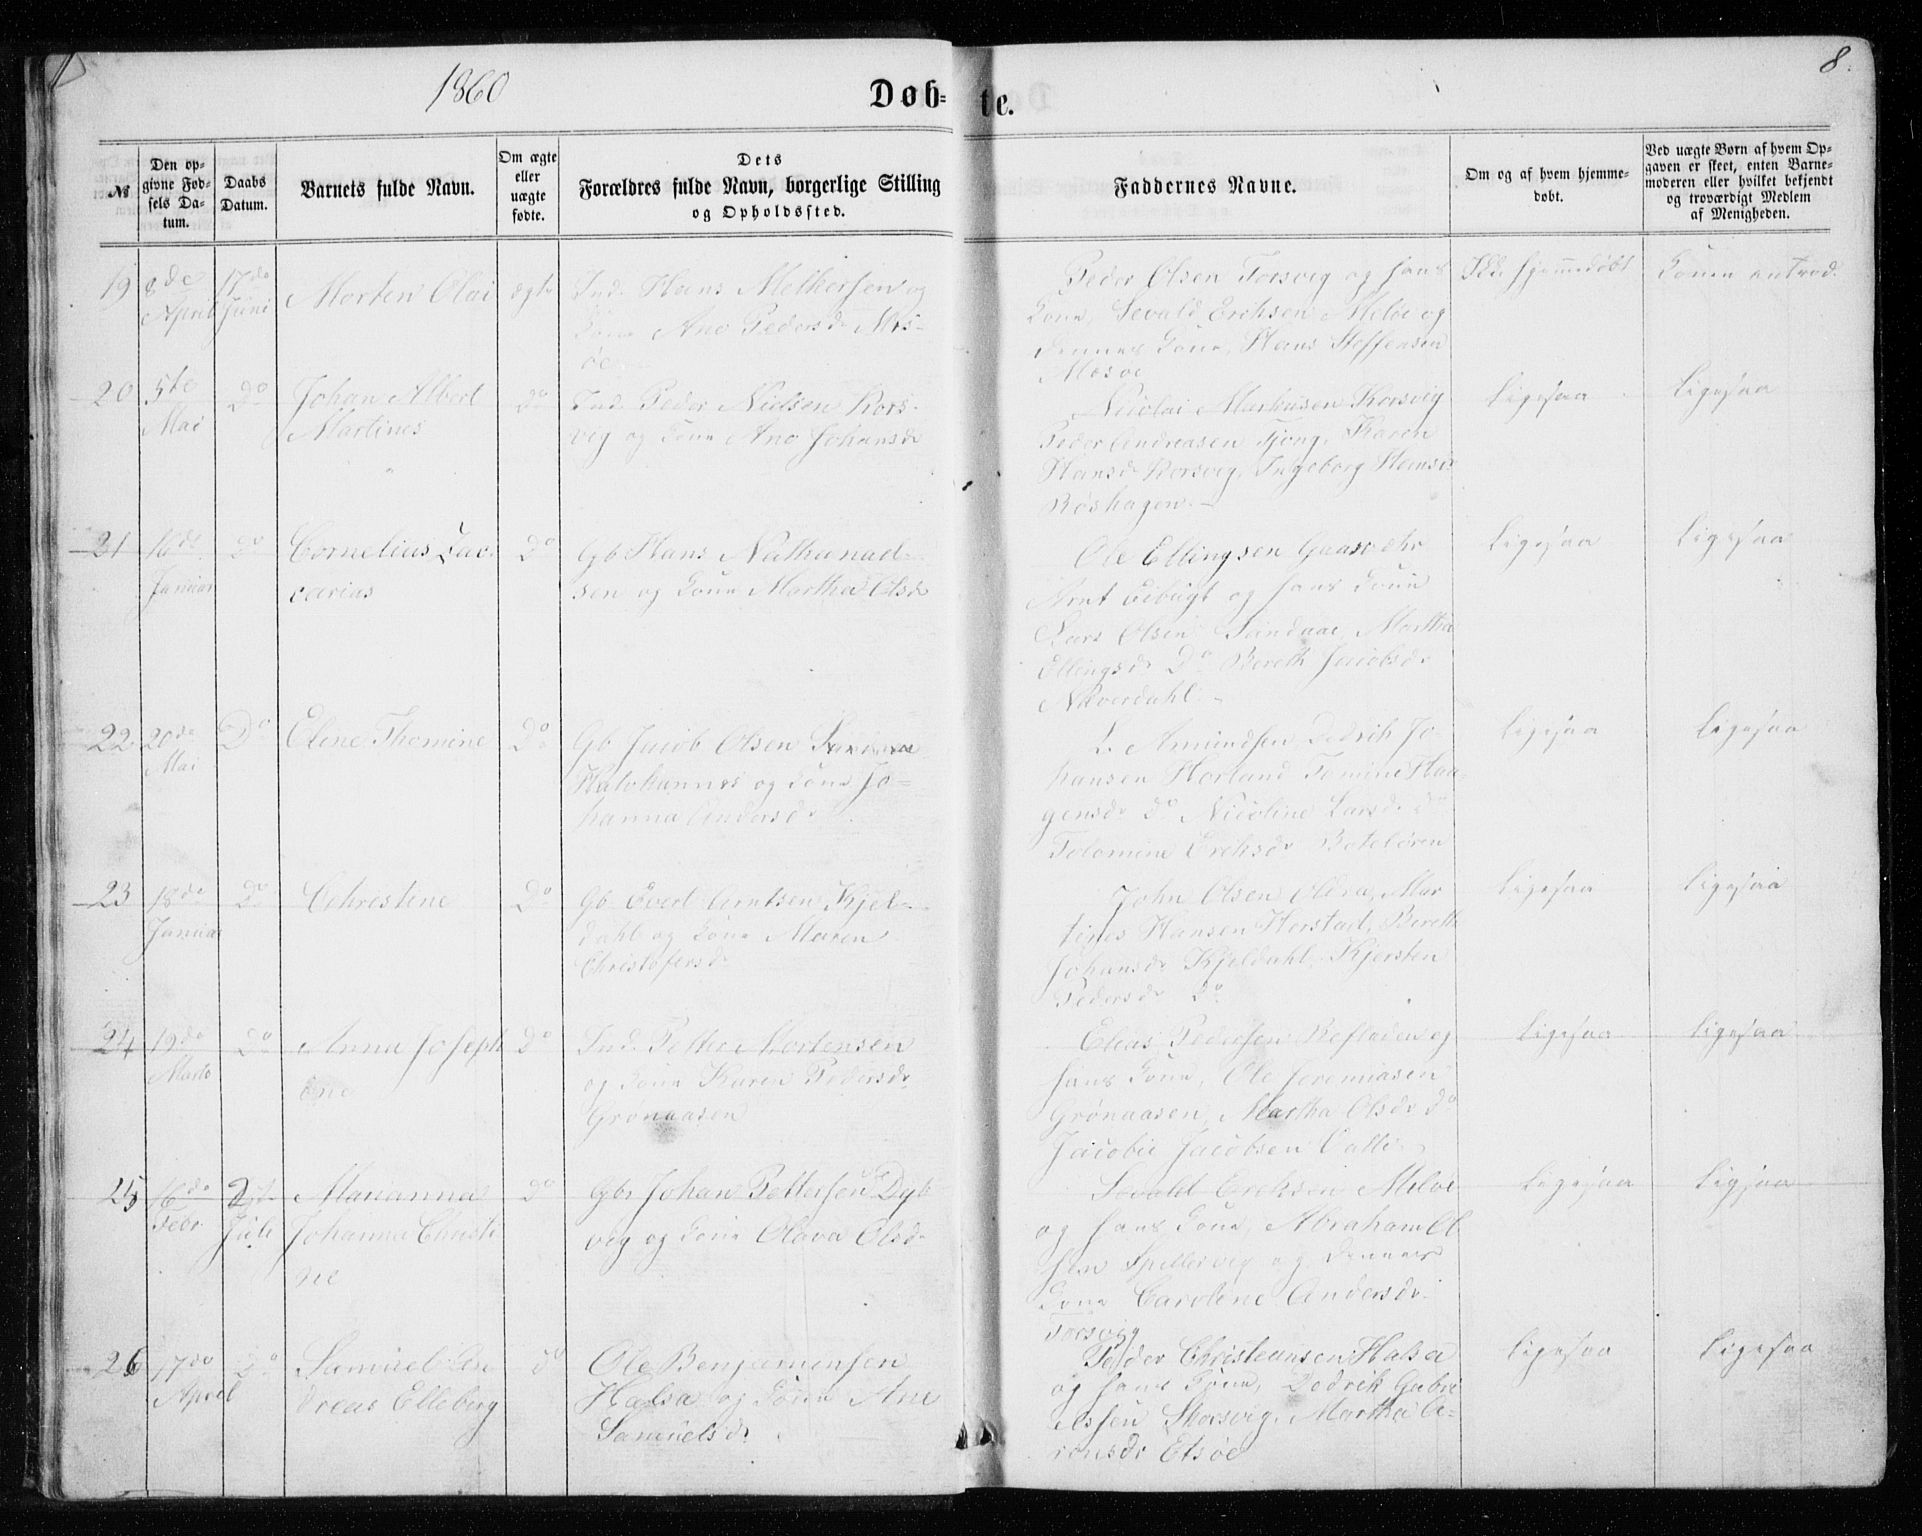 1860
8.
Døb=
te.
№
Den op=
givne Fød=
sels Da=
tum.
Daabs
Datum.
Barnets fulde Navn.
Om ægte
eller
uægte
fødte.
Dets
Forældres fulde Navn, borgerlige Stilling
og Opholdssted.
Faddernes Navne.
Om og af hvem hjemme=
døbt.
Ved uægte Børn af hvem Op=
gaven er skeet, enten Barne=
moderen eller hvilket bekjendt
og troværdigt Medlem
af Menigheden.
19
8de
April
17de
Juni
Morten Olai
ægte
Ind. Hans Melkersen og
Kone Ane Pedersdr Mes-
øe
Peder Olsen Torsvig og hans
Kone, Sevald Eriksen Meløe og
dennes Kone, Hans Steffensen
Mesøe
Ikke hjemmedøbt
20
5te
Mai
Do
Johan Albert
Martines
do
Ind. Peder Nielsen Kors-
vig og Kone Ane Johansdr
Nicolai Markusen Korsvig
Peder Andreasen Fjong, Karen
Hansdr Korsvig, Ingeborg Hansdr
Røshagen.-
Ligesaa
Ligesaa
21
16de
Januar
Do
Cornelius Zac
carias
Do
Gb Hans Nathanael-
sen og Kone Martha Olsdr
Ole Ellingsen Gaasvær
Arnt Vebugt og hans Kone
Lars Olsen Sandaae, Martha
Ellingsdr Do Bereth Jacobsdr
Nÿverdahl.-
Ligesaa
Ligesaa
22
20de
Mai
Do
Eline Thomine
Do
Gb Jacob Olsen
og Kone Jo-
hanna Andersdr
L. Amundsen, Dedrik Jo-
hansen Horland, Tomine Haa-
gensdr do Nicoline Larsdr do
Tolomine Eriksdr
Ligesaa
Ligesaa
23
18de
Januar
Do
Christine
Do
Gb. Evert Arntsen Kjel-
dahl og Kone Maren
Christofersdr
John Olsen Oldra, Mar
tines Hansen Horstad, Bereth
Johansdr Kjeldahl, Kjersten
Pedersdr Do
Ligesaa
Ligesaa
24
19de
Marts
Do
Anna Joseph
ine
Do
Ind. Petter Mortensen
og Kone Karen Pedersdr
Grønaasen
Elias Pedersen og
hans Kone, Ole Jeremiasen
Grønaasen, Martha Olsdr do
Jacobie Jacobsen
Ligesaa
Ligesaa
25
16de
Febr
Juli
Marianna
Johanna Christi
ne
do
Gbr Johan Pettersen Dyb
vig og Kone Olava Olsdr
Sevald Eriksen Meløe
og hans Kone, Abraham Ol
sen Spellervig og dennes
Kone Caroline Andersdr
Torsvig
Ligesaa
Ligesaa
26
17de
April
Do
Samuel An
dreas Elleberg
do
Ole Benjaminsen
Halsa og Kone Ane
Samuelsdr
Peder Christiansen Halsa
og hans Kone, Dedrik Gabri
elsen Storsvig, Martha A-
ronsdr Etsøe
Ligesaa
Ligesaa